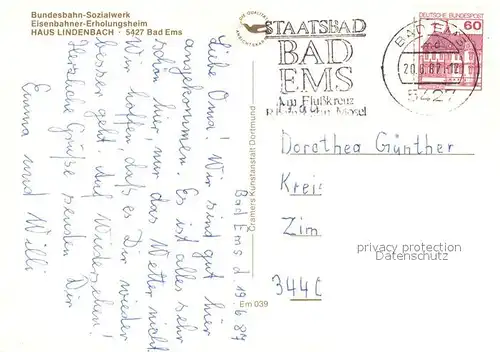 Bundesbahn-Sozialwerk
Eisenbahner-Erholungsheim
HAUS LINDENBACH · 5427 Bad Ems
Bad Ems d. 19.6.87
Liebe Oma! Wir sind gut hier
angekommen. Es ist alles sehr
schön hier, nur das Wetter nicht
Wir hoffen, daß es Dir wieder
besser geht. Auf Wiedersehen!
Herzliche Grüße senden Dir
Emma und Willi
Cramers Kunstanstalt Dortmund
Em 039
STAATSBAD
BAD
EMS
Am Flußkreuz
BAD EMS
20.6.87-12
5427
DEUTSCHE BUNDESPOST
60
Dorothea Günther
Kreis
Zim
344
privacy protection
Datenschutz